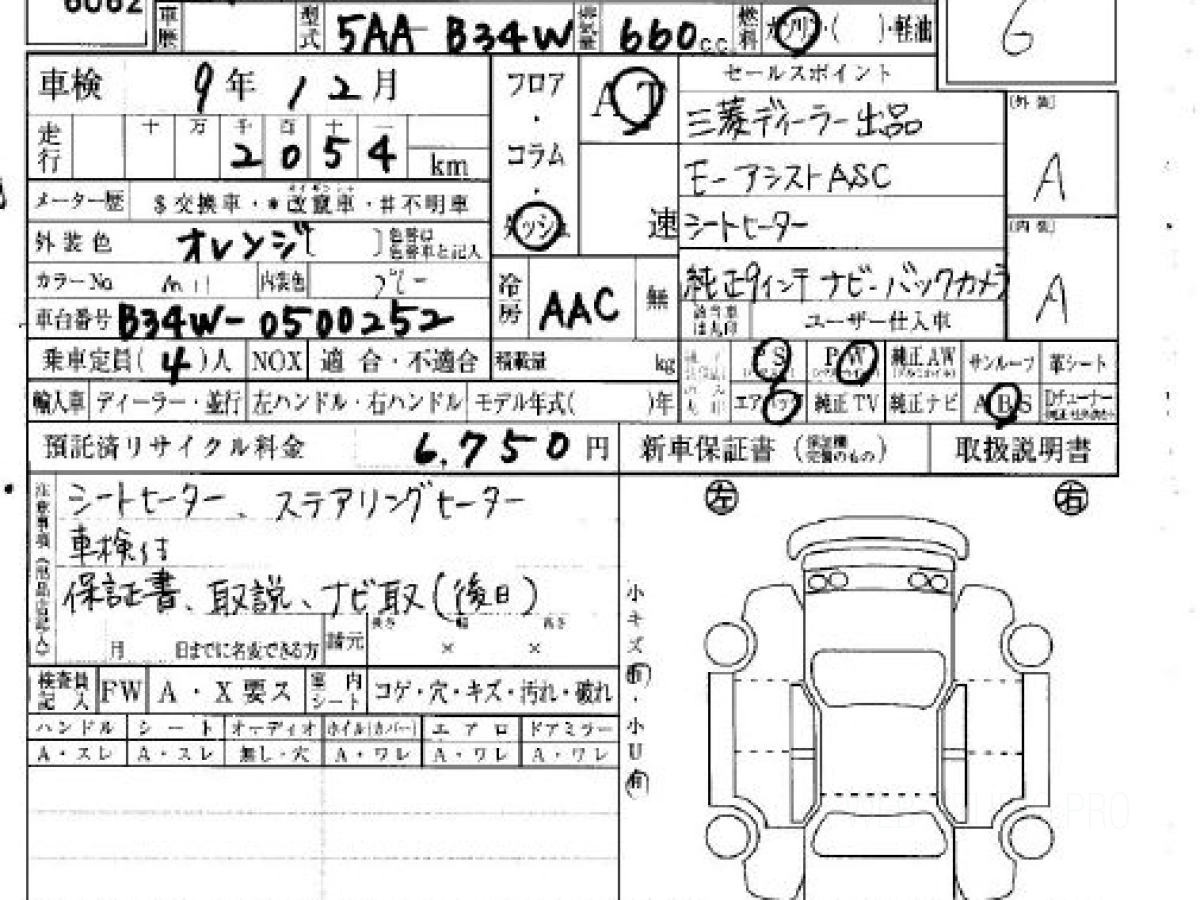 6082
車歴 型式 5AA B34W 660 c.c. 燃料 ガソリン・( )・軽油
6
車検 9年 12月 フロア・コラム・ダッシュ AT セールスポイント
三菱ディーラー出品
走行 十 万 千 百 十 一
2054 km
(外装) A
モーアシストASC
メーター歴 $交換車・*改竄車・#不明車
外装色 オレンジ[ ] 色替は色替車と記入
速 シートヒーター
(内装) A
カラーNo M11 内装色 グレー
冷房 AAC 無
純正9インチナビ・バックカメラ
該当車は丸印 ユーザー仕入車
車台番号 B34W-0500252
乗車定員(4)人 NOX 適合・不適合 積載量 kg
PS PW 純正AW サンルーフ 革シート
輸入車 ディーラー・並行 左ハンドル・右ハンドル モデル年式( )年
エアバッグ 純正TV 純正ナビ ABS Dチューナー
預託済リサイクル料金 6,750円 新車保証書(保証欄完備のもの) 取扱説明書
注意事項
シートヒーター、ステアリングヒーター
車検付
保証書、取説、ナビ取(後日)
左 右
月 日までに名変できる方 諸元 長さ 幅 高さ
× ×
小キズ有・小U有
検査員記入 FW A・X要ス 室内シート コゲ・穴・キズ・汚れ・破れ
ハンドル シート オーディオ ホイル(カバー) エアロ ドアミラー
A・スレ A・スレ 無し・穴 A・ワレ A・ワレ A・ワレ
PRO